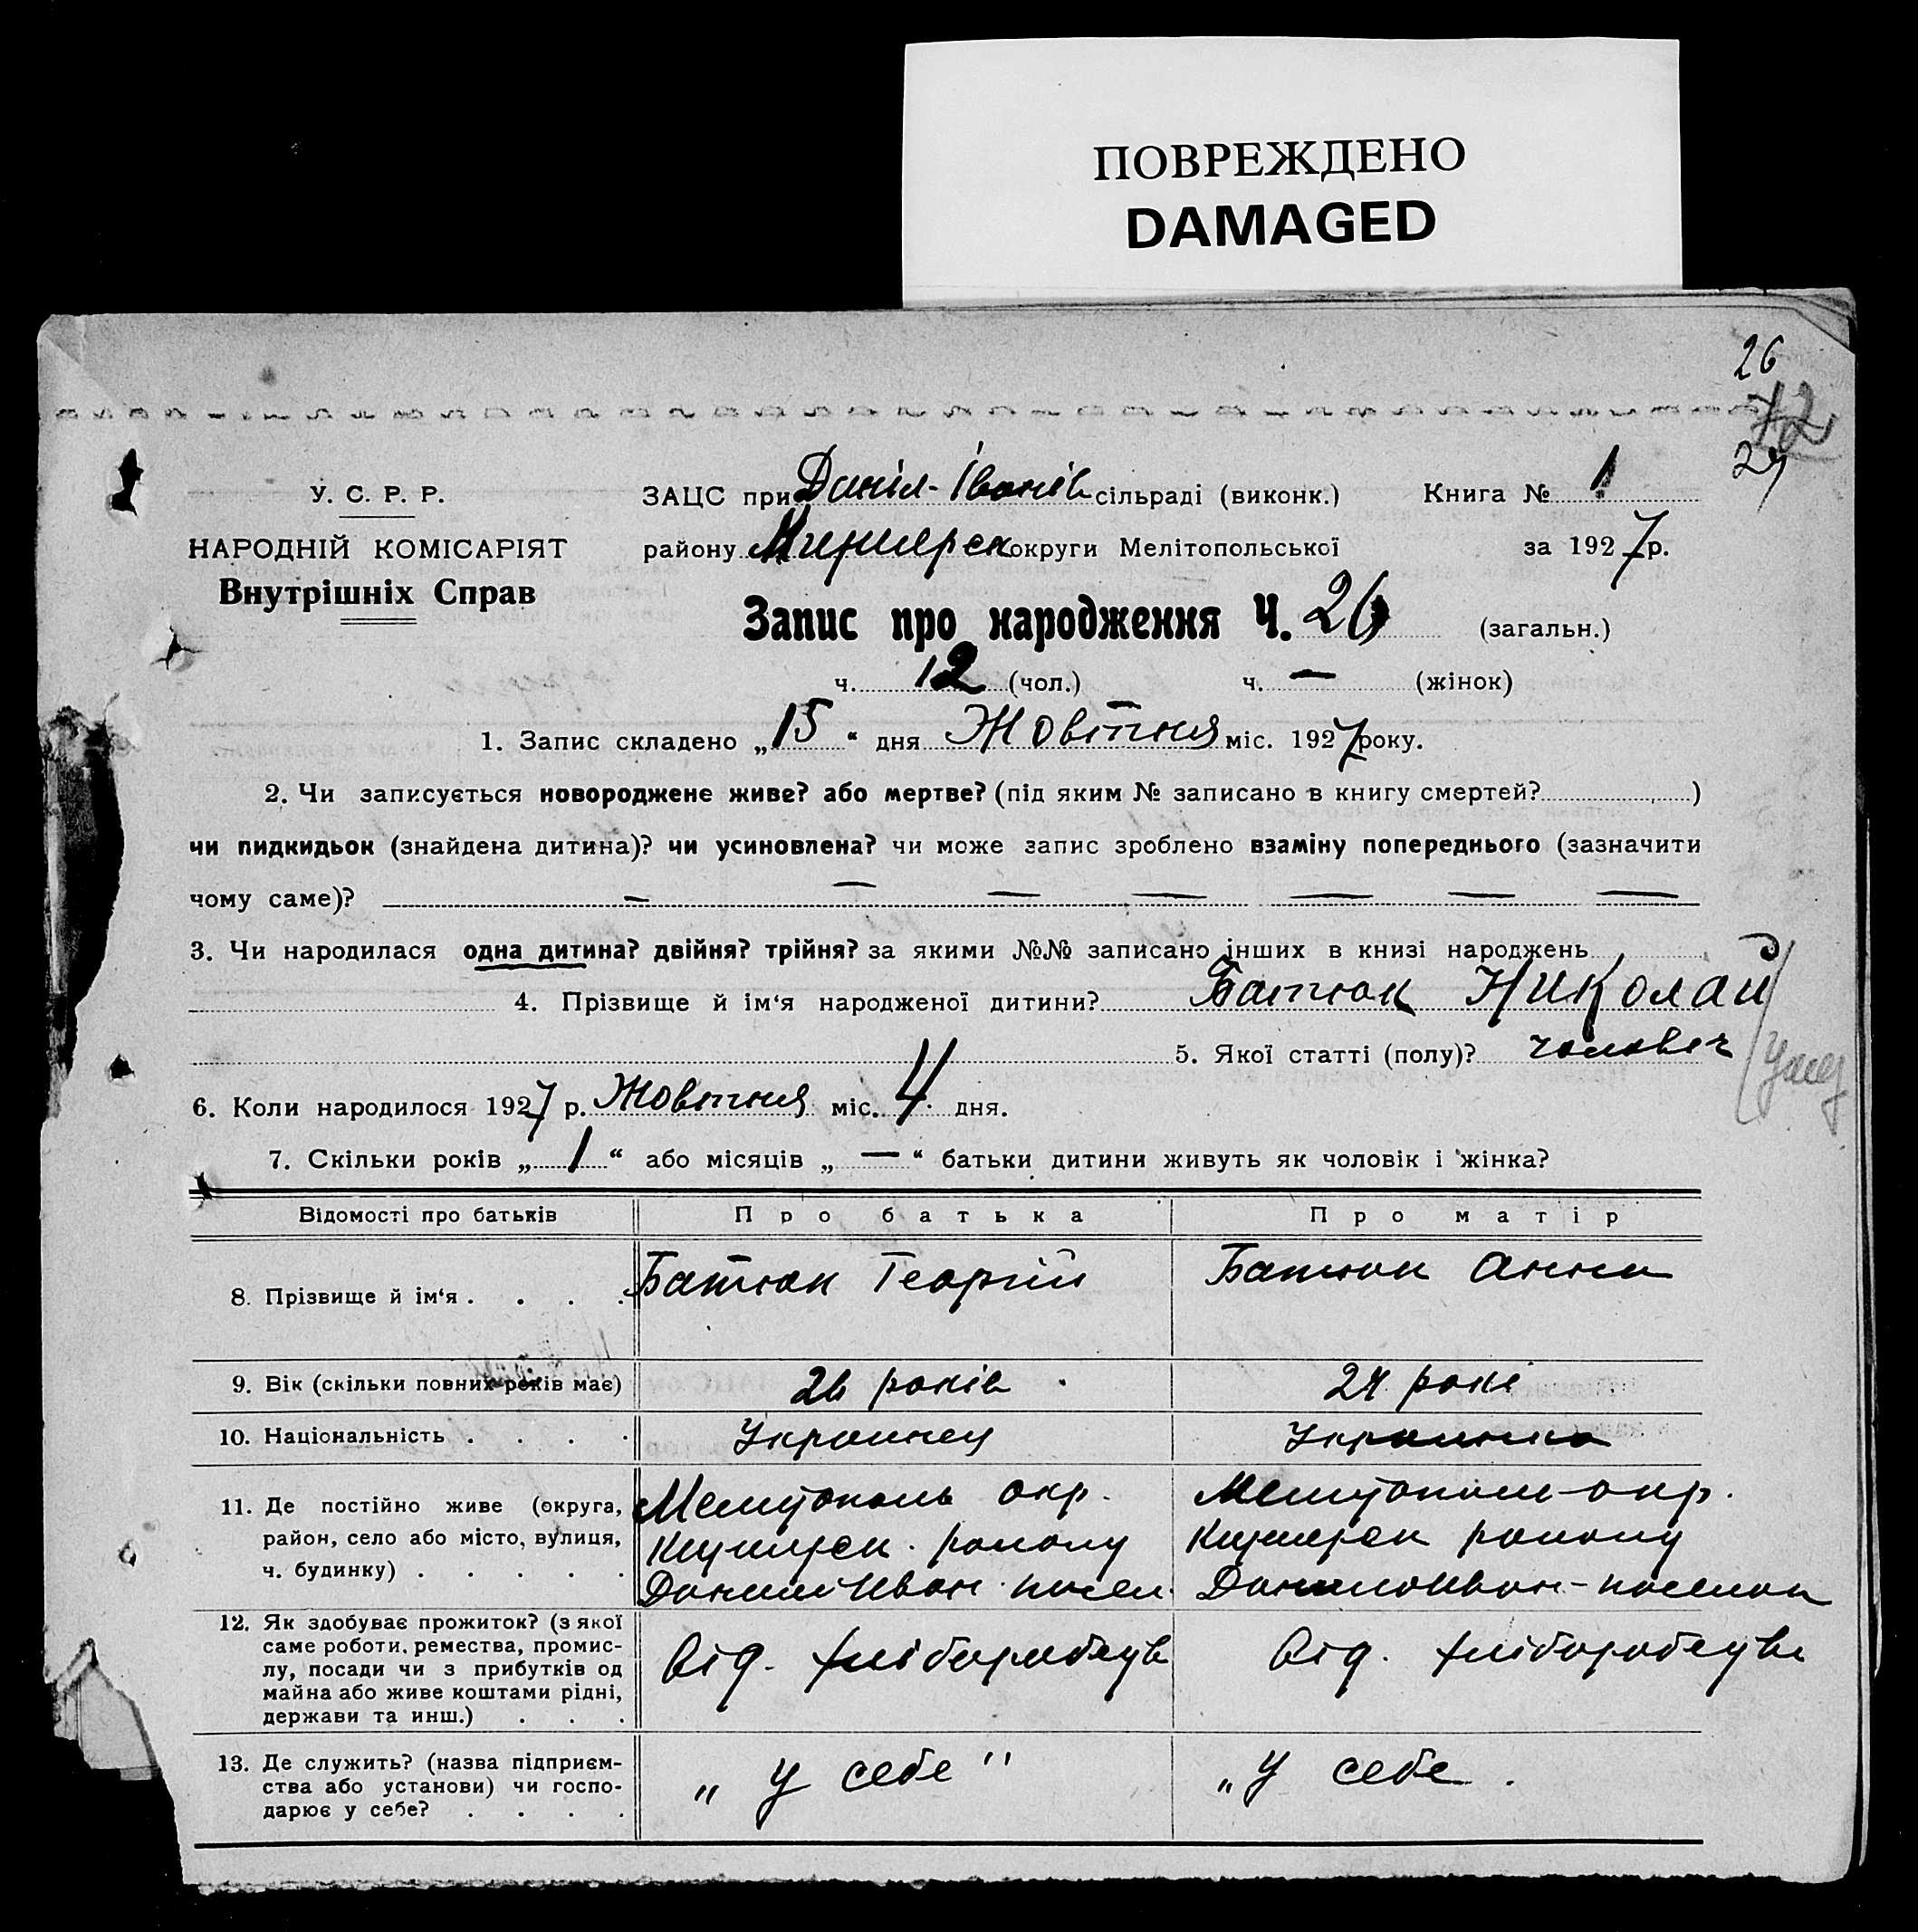 ПОВРЕЖДЕНО
DAMAGED
26
72
27
У. С. Р. Р.
НАРОДНІЙ КОМІСАРІЯТ
Внутрішніх Справ
ЗАЦС при Даніл-Іванів сільраді (виконк.) Книга № 1
району округи Мелітопольської за 1927 р.
Запис про народження Ч. 26 (загальн.)
ч. 12 (чол.) ч. — (жінок)
1. Запис складено „15“ дня Жовтня міс. 1927 року.
2. Чи записується новороджене живе? або мертве? (під яким № записано в книгу смертей? )
чи пидкидьок (знайдена дитина)? чи усиновлена? чи може запис зроблено взаміну попереднього (зазначити
чому саме)? — — — — — — —
3. Чи народилася одна дитина? двійня? трійня? за якими №№ записано інших в книзі народжень
4. Прізвище й ім‘я народженої дитини? Батюк Николай
5. Якої статті (полу)? чоловеч
6. Коли народилося 1927 р. Жовтня міс. 4 дня.
7. Скільки років „1“ або місяців „—“ батьки дитини живуть як чоловік і жінка?
Відомості про батьків Про батька Про матір
8. Прізвище й ім‘я . . . . Батюк Георгій Батюк Анна
9. Вік (скільки повних років має) 26 років 24 рокі
10. Національність . . . . Украинец Украинка
11. Де постійно живе (округа, Мелитополь окр. Мелитополь окр.
район, село або місто, вулиця, району району
ч. будинку) . . . . . Данило Иван. посел. Данило Иван-поселок
12. Як здобуває прожиток? (з якої
саме роботи, ремества, промис-
лу, посади чи з прибутків од від. хліборобтув від. хліборобтув
майна або живе коштами рідні,
держави та инш.) . . .
13. Де служить? (назва підприєм-
ства або установи) чи госпо- „ у себе " „ у себе .
дарює у себе? . . . .